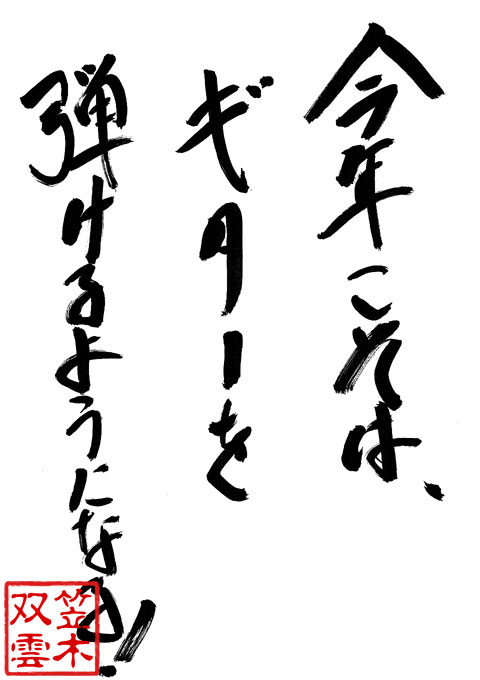 今年こそは、
ギターを
弾けるようになる!
笠木
双雲